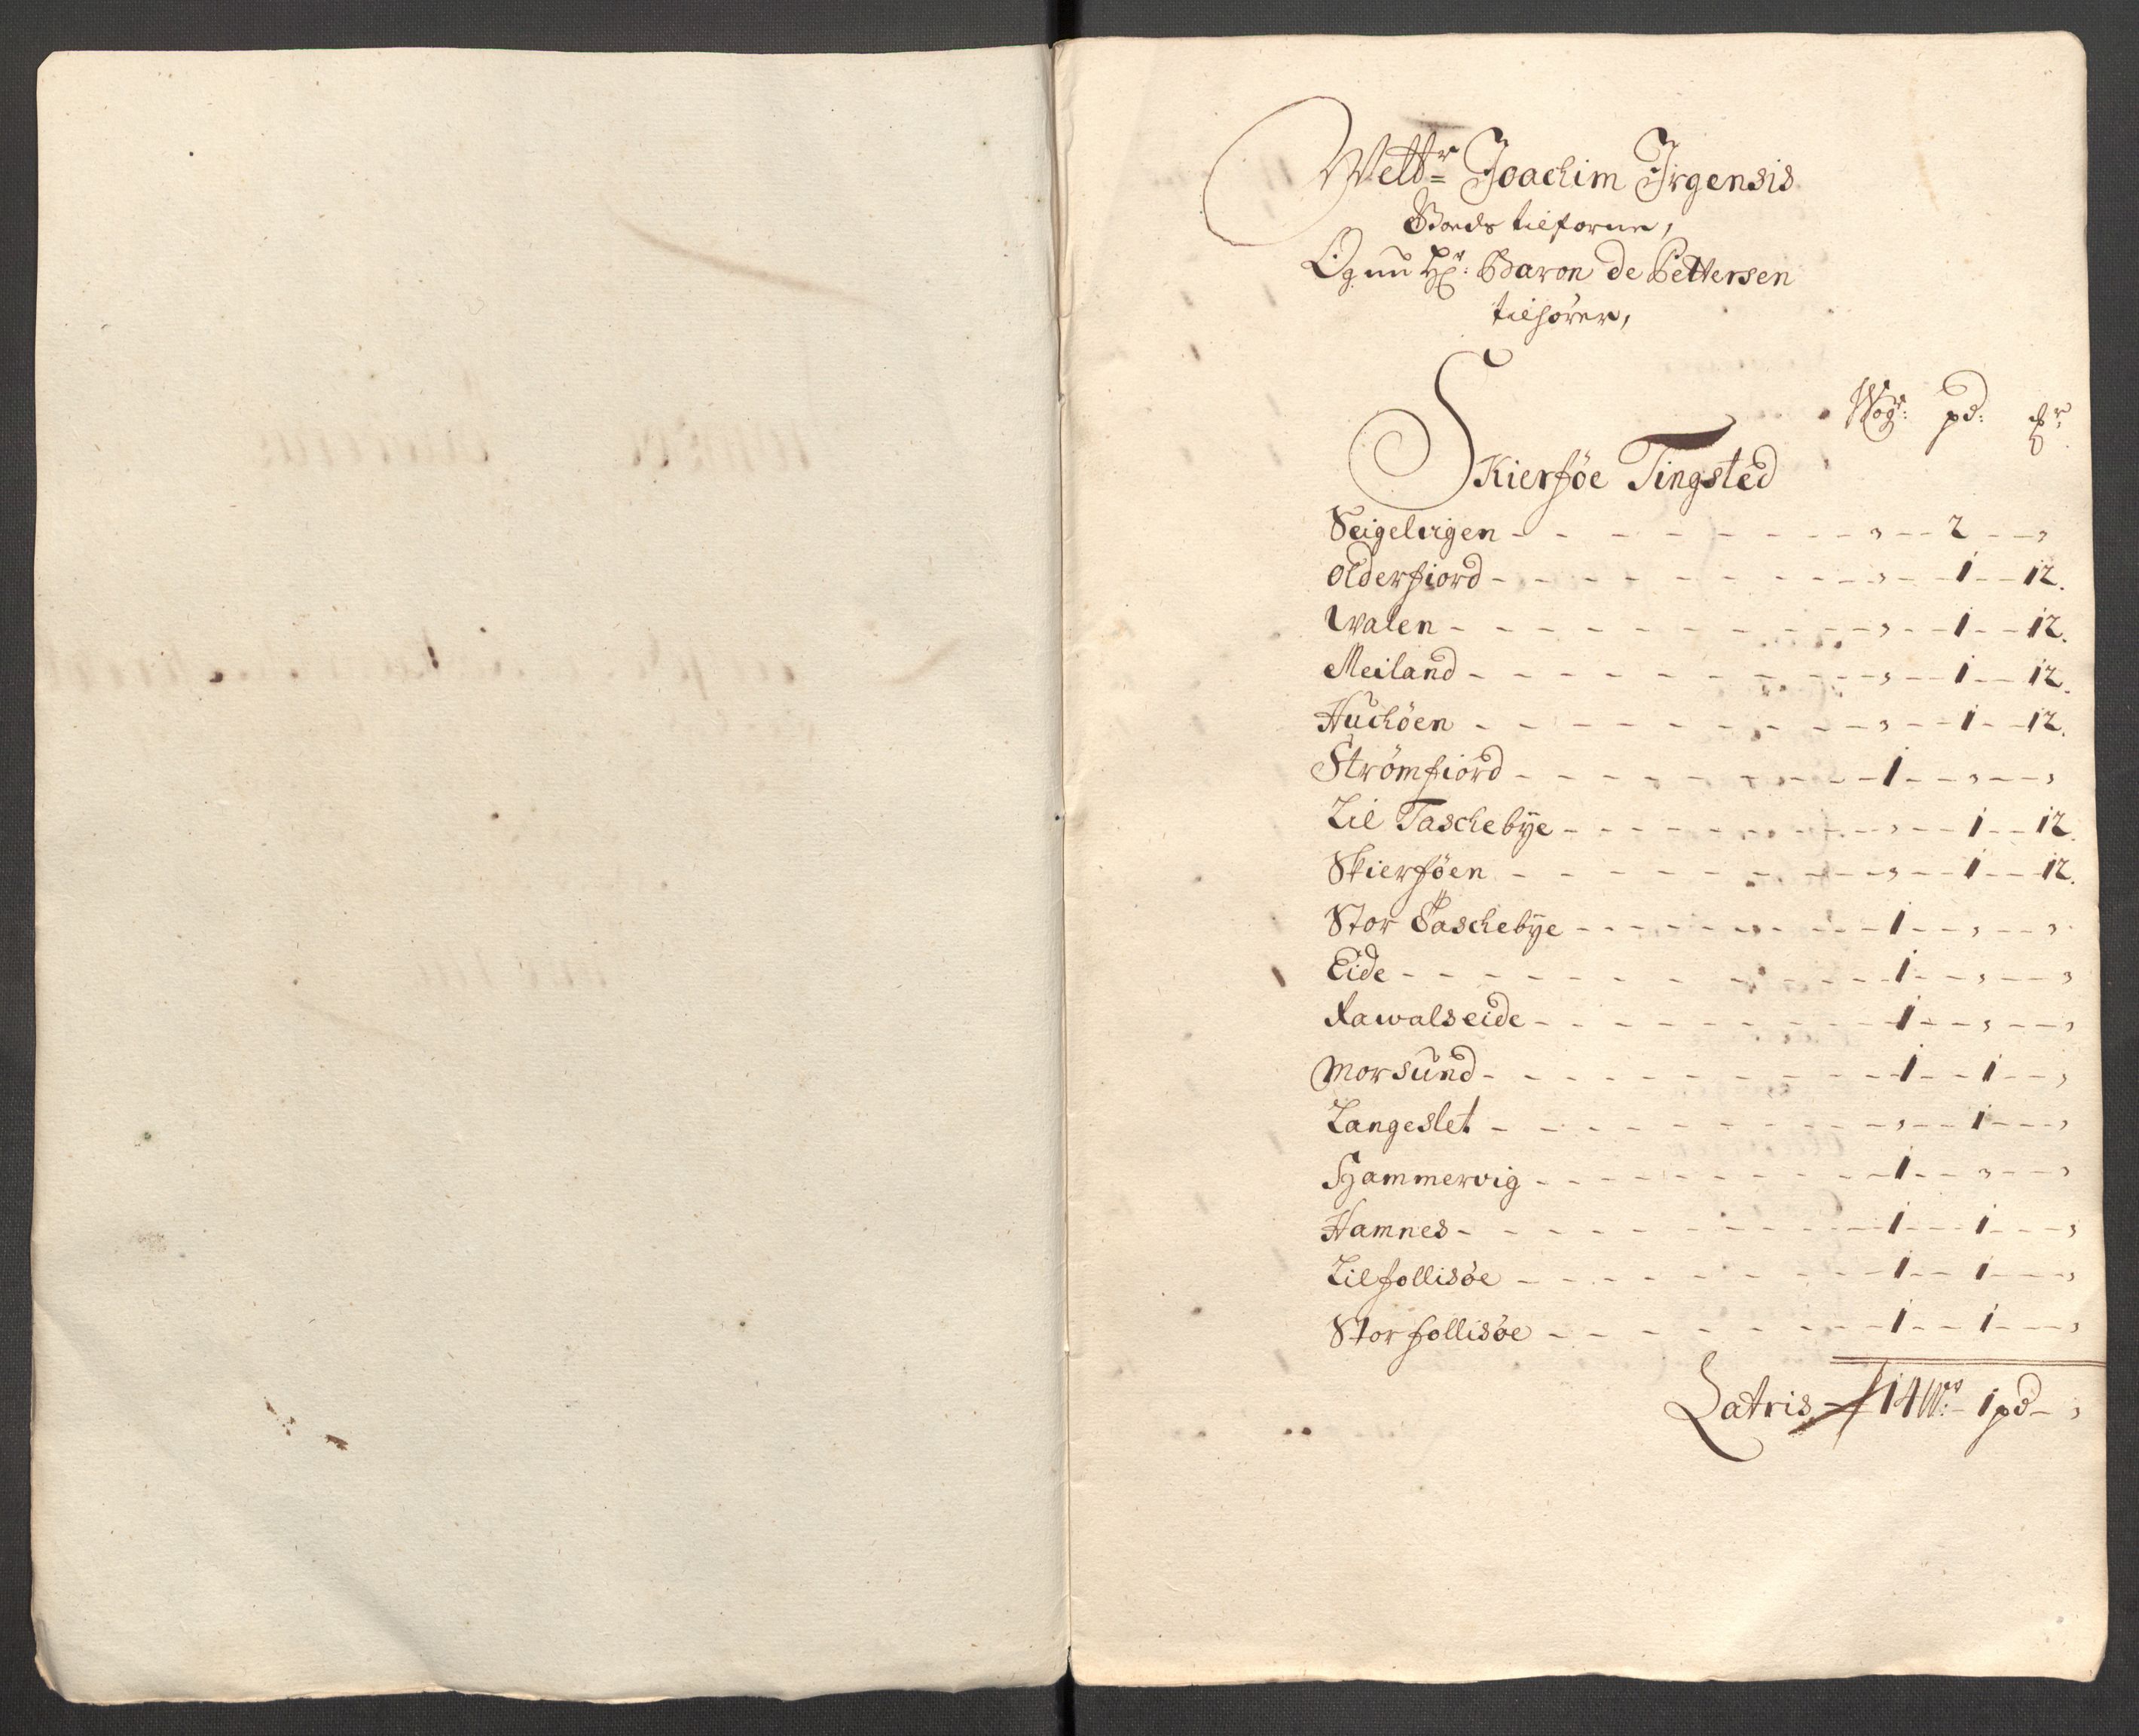 Wellbr= Joachim Irgensis
Goeds tilforne,
Og nu Hr: Baron de Pettersen
tilhører,
Wogr: pd: mkr
Skierføe Tingsted
Seigelvigen - - - - - - - - - , - - 2 - - ,
Olderfiord - - - - - - - - - , - - 1 - - 12.
Walen - - - - - - - - - , - - 1 - - 12.
Meiland - - - - - - - - - , - - 1 - - 12.
Huchøen - - - - - - - - - , - - 1 - - 12.
Strømfiord - - - - - - - - - 1 - - , - - ,
Lil Taschebye - - - - - - - - - , - - 1 - - 12.
Skierføen - - - - - - - - - , - - 1 - - 12.
Stor Taschebye - - - - - - - - - 1 - - , - - ,
Eide - - - - - - - - - 1 - - , - - ,
Rawalseide - - - - - - - - - 1 - - , - - ,
Morsund - - - - - - - - - 1 - - 1 - - ,
Langeslet - - - - - - - - - , - - 1 - - ,
Hammervig - - - - - - - - - 1 - - , - - ,
Hamnes - - - - - - - - - 1 - - 1 - - ,
Lilfollisøe - - - - - - - - - 1 - - 1 - - ,
Storfollisøe - - - - - - - - - 1 - - 1 - - ,
Latris - 14 W: - 1 pd - ,